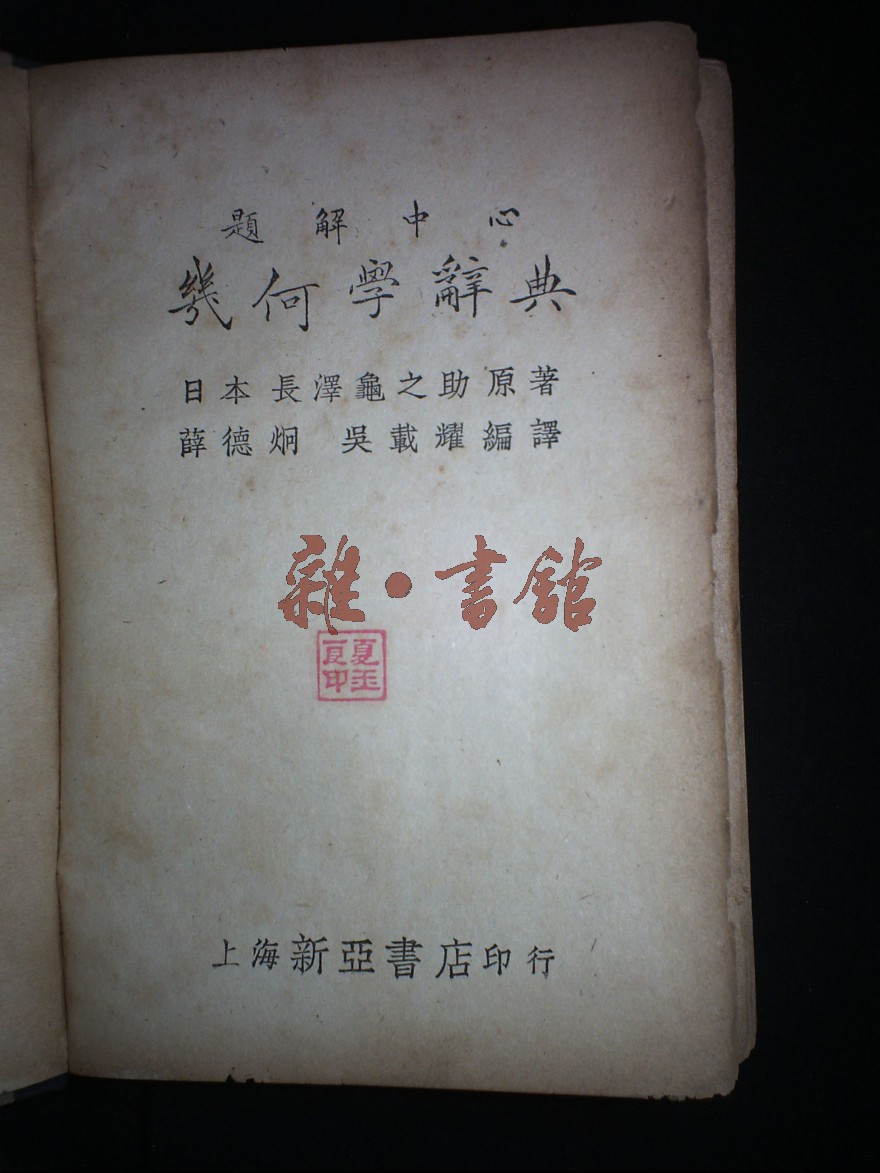 題解中心
幾何學辭典
日本 長澤龜之助原著
薛德炯 吳載耀編譯
雜·書館
上海新亞書店印行